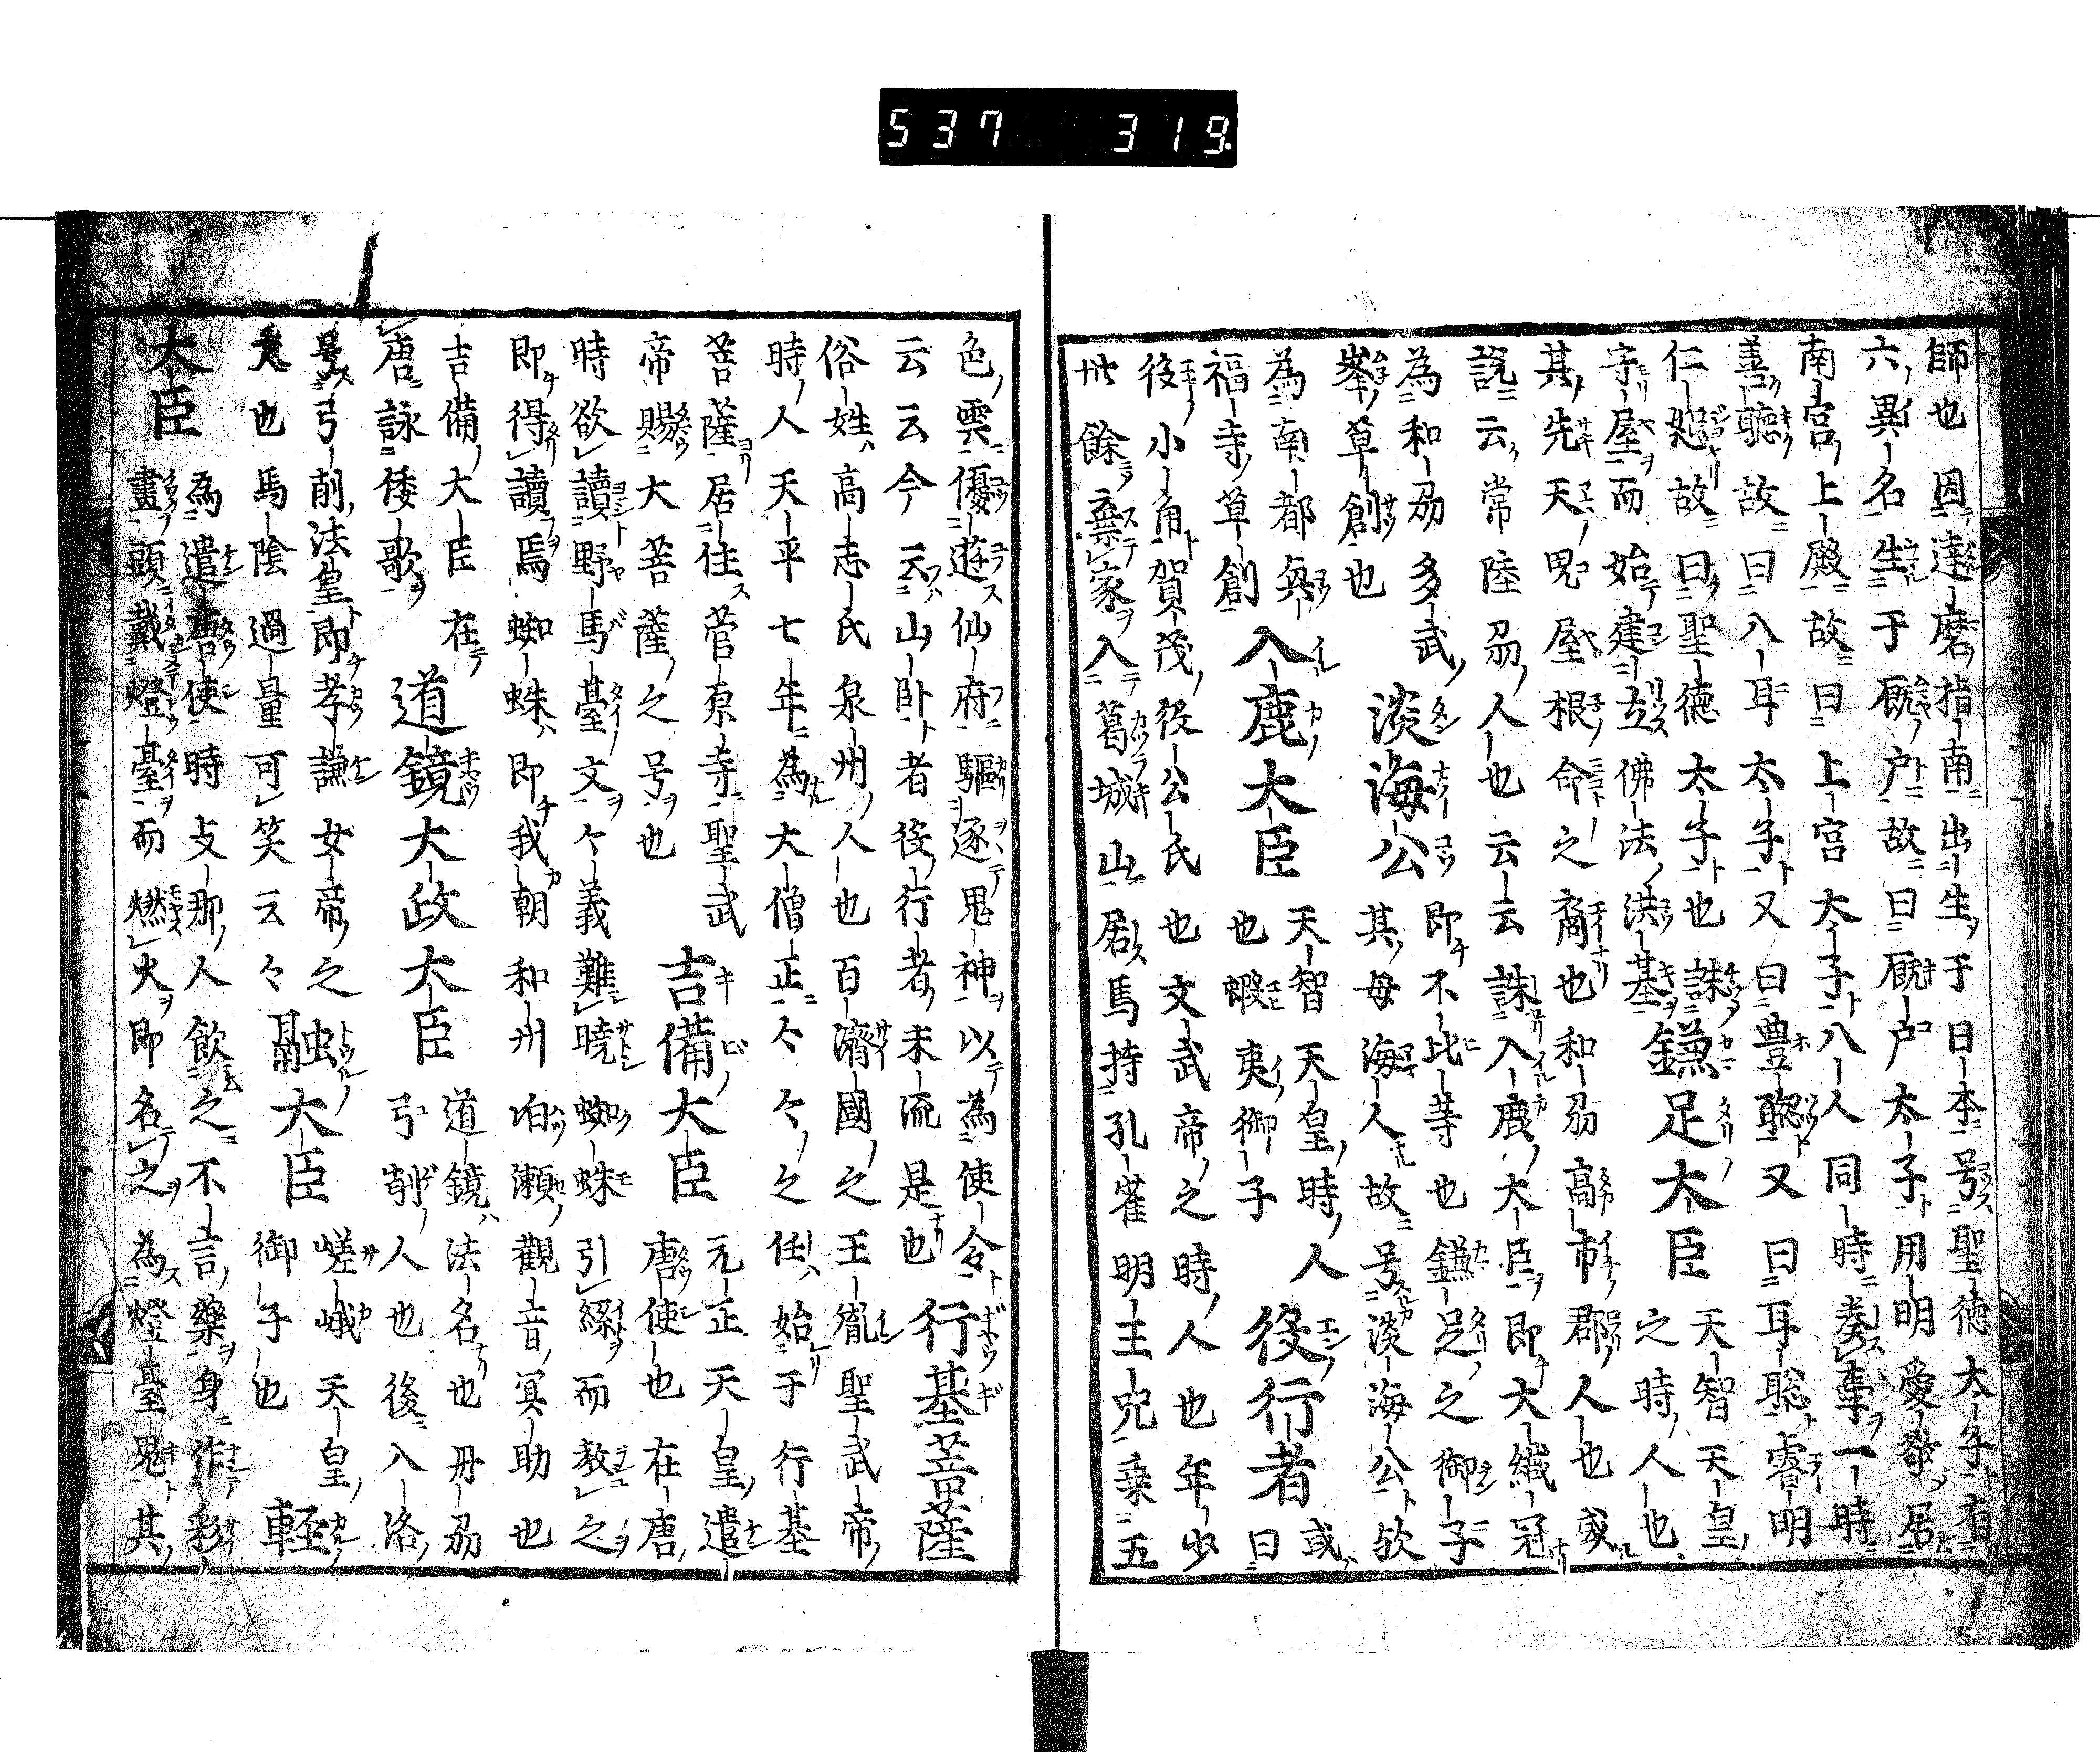 537 319
師也 因達磨指南出生于日本号聖徳太子有
六異名生于厩戸故曰厩戸太子用明愛敬居
南宮上殿故曰上宮太子八人同時奏事一時
善聴故曰八耳太子又曰豊聡又曰耳聡睿明
仁恕故曰聖徳太子也 誅
守屋而始建立佛法洪基 鎌足大臣 天智天皇
之時人也
其先天児屋根命之裔也和刕高市郡人也或
説云常陸刕人也云云誅入鹿大臣即大織冠
為和刕多武
峯草創也 淡海公 即不比等也鎌足之御子
其母海人故号淡海公欤
為南都興
福寺草創 入鹿大臣 天智天皇時人
也蝦夷御子 役行者 或曰
役小角賀茂役公氏也文武帝之時人也年少
卅餘棄家入葛城山居馬持孔雀明王呪乗五
色雲優遊仙府駆逐鬼神以為使令
云云今云山卧者役行者末流是也 行基菩薩
俗姓高志氏泉州人也百濟國之王胤聖武帝
時人天平七年為大僧正仒仒之任始于行基
菩薩居住菅原寺聖武
帝賜大菩薩之号也 吉備大臣 元正天皇遣
唐使也在唐
時欲讀野馬臺文々義難暁蜘蛛引絲而教之
即得讀焉蜘蛛即我朝和州泊瀬觀音冥助也
吉備大臣在
唐詠倭歌 道鏡大政大臣 道鏡法名也丹刕
弓削人也後入洛
号弓削法皇即孝謙女帝之
夫也馬陰過量可笑云々 融大臣 嵯峨天皇
御子也 軽
大臣 為遣唐使時支那人飲之不言藥身作彩
畫頭戴燈臺而燃火即名之為燈臺鬼其